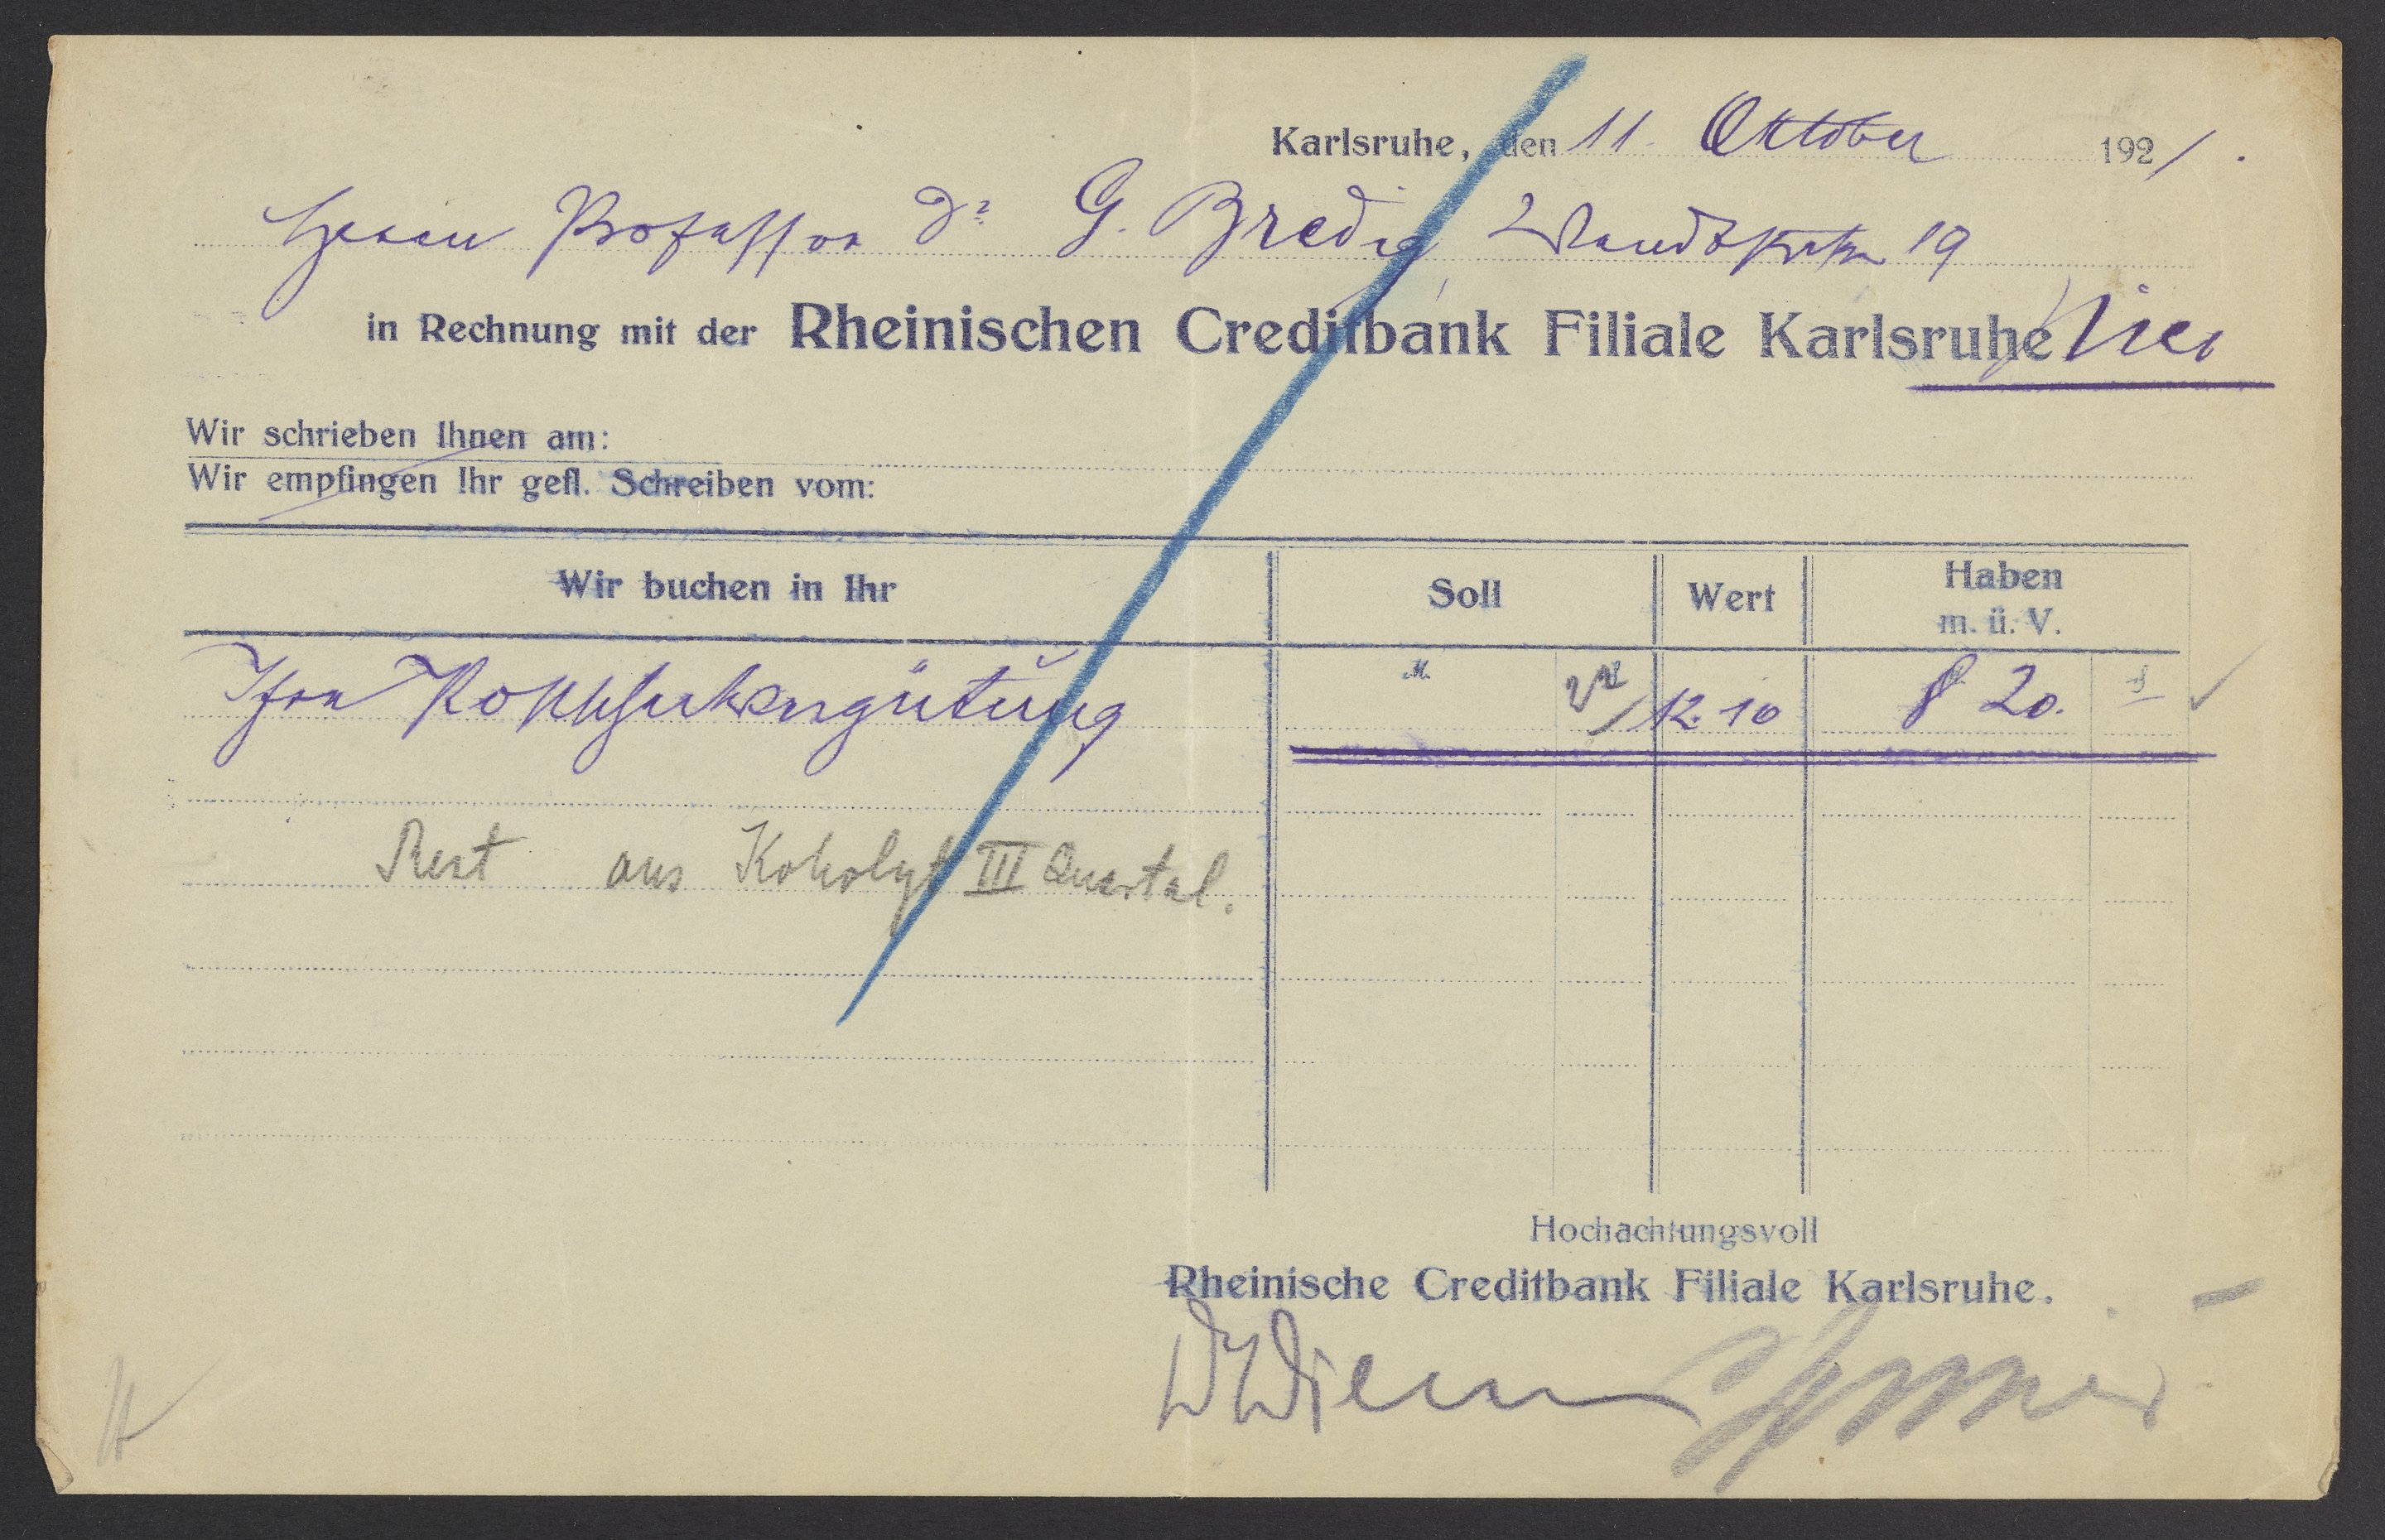 Karlsruhe, den 11. Oktober 1921.
Herrn Professor Dr G. Bredig
19
in Rechnung mit der Rheinischen Creditbank Filiale Karlsruhe
hier
Wir schrieben Ihnen am:
Wir empfingen Ihr gefl. Schreiben vom:
Wir buchen in Ihr Soll Wert Haben
m. ü. V.
Ihre M. 12.10 8 20.
Rest aus Koholyt III Quartal.
Hochachtungsvoll
Rheinische Creditbank Filiale Karlsruhe.